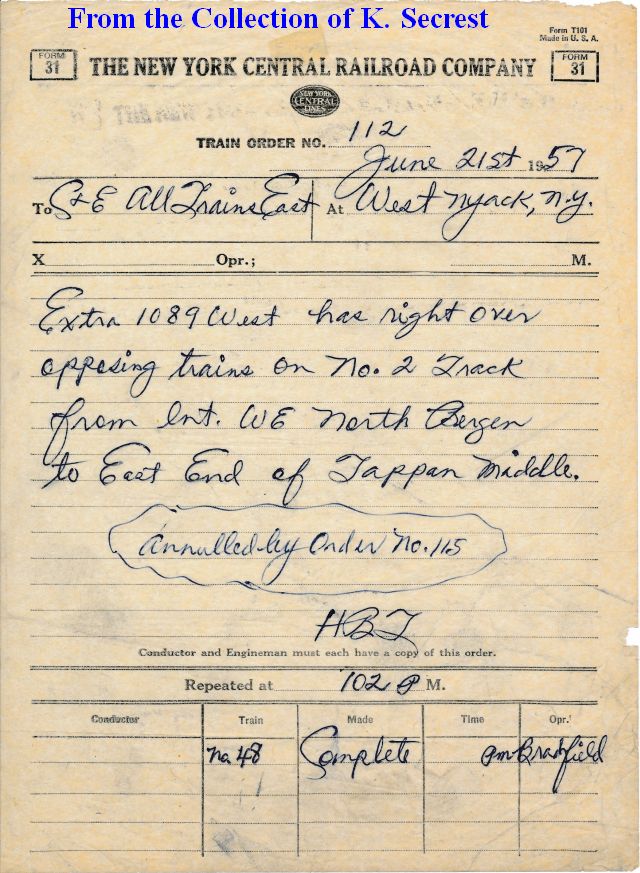 From the Collection of K. Secrest
Form T101
Made in U. S. A.
FORM 31 THE NEW YORK CENTRAL RAILROAD COMPANY FORM 31
NEW YORK CENTRAL LINES
TRAIN ORDER NO. 112
June 21st 1957
To C&E All Trains East At West Nyack, N.Y.
X Opr.; M.
Extra 1089 West has right over
opposing trains on No. 2 Track
from Int. WE North Bergen
to East End of Tappan Middle.
Annulled by Order No. 115
HBT
Conductor and Engineman must each have a copy of this order.
Repeated at 102 P M.
Conductor Train Made Time Opr.
No. 48 Complete PM Bradfield